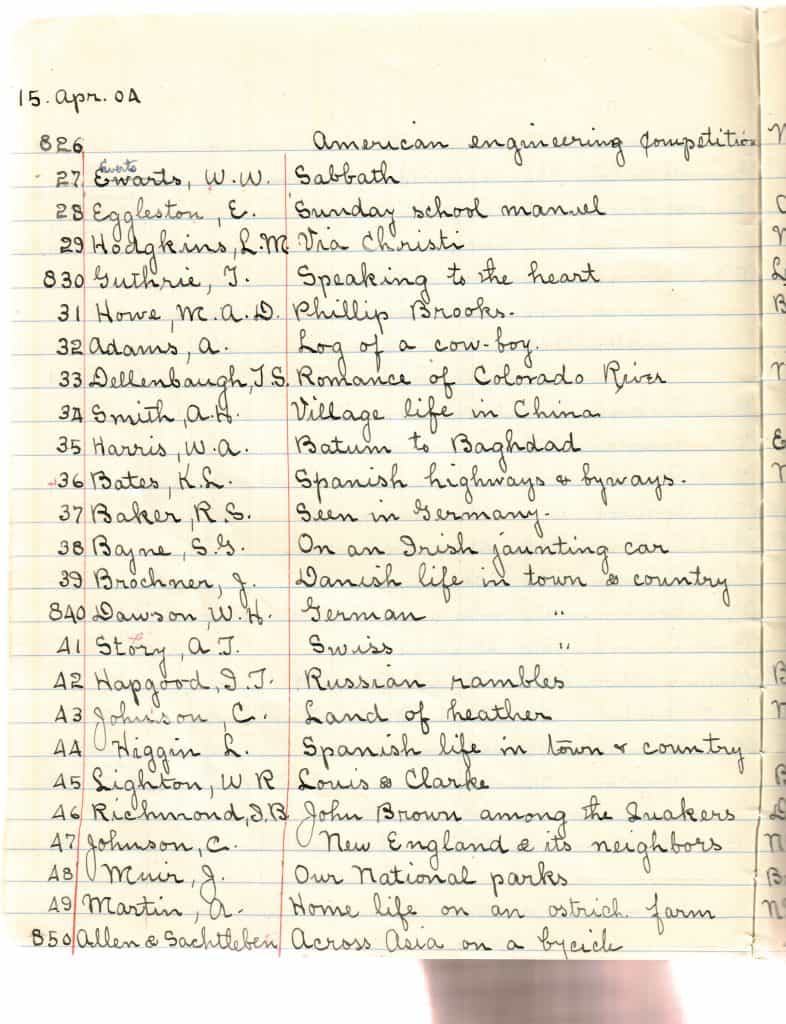 15. Apr. 04
826 American engineering competition
Everts
27 Ewarts, W.W. Sabbath
28 Eggleston, E. Sunday school manuel
29 Hodgkins, L.M Via Christi
830 Guthrie, T. Speaking to the heart
31 Howe, M.A.D. Phillip Brooks.
32 Adams, A. Log of a cow-boy.
33 Dellenbaugh, F.S. Romance of Colorado River
34 Smith, A.H. Village life in China
35 Harris, W.A. Batum to Baghdad
36 Bates, K.L. Spanish highways & byways.
37 Baker, R.S. Seen in Germany.
38 Bayne, S.G. On an Irish jaunting car
39 Brochner, J. Danish life in town & country
840 Dawson, W.H. German "
41 Story, A.T. Swiss "
42 Hapgood, I.F. Russian rambles
43 Johnson, C. Land of heather
44 Higgin L. Spanish life in town & country
45 Lighton, W R Louis & Clarke
46 Richmond, I.B John Brown among the Quakers
47 Johnson, C. New England & its neighbors
48 Muir, J. Our National parks
49 Martin, A. Home life on an ostrich farm
850 Allen & Sachtleben Across Asia on a bycicle